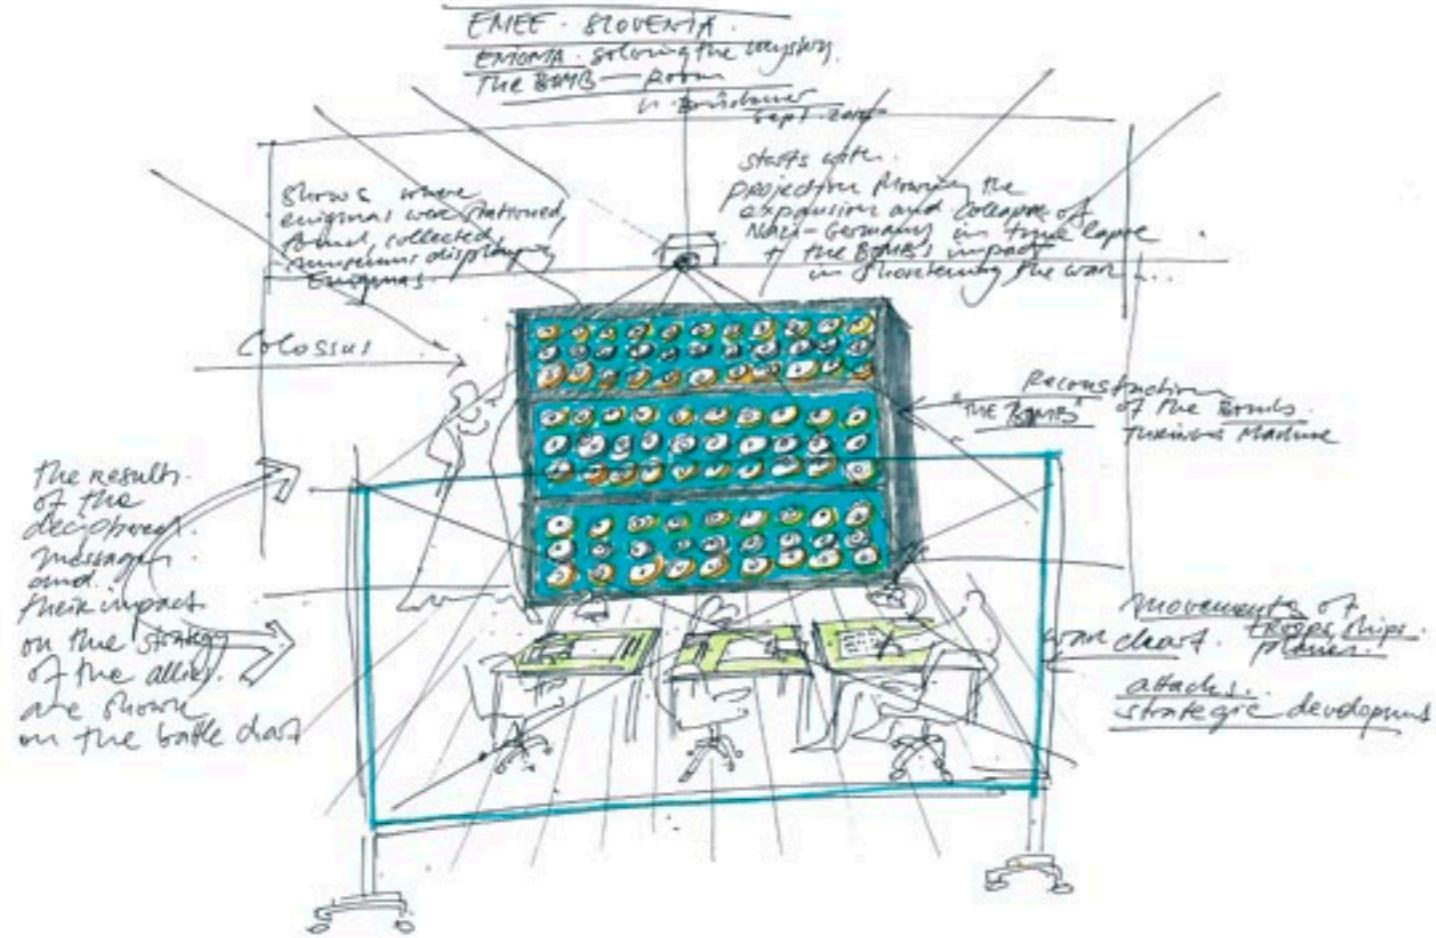 EMEE · SLOVENIA.
ENIGMA · solving the mystery.
The BOMB — Room
Sept. 
shows where
enigmas were stationed,
found, collected
museums displaying
Enigmas.
starts with.
projection showing the
expansion and collapse of
Nazi-Germany in time lapse
+ the BOMB's impact
in shortening the war...
Colossus
Reconstruction
"THE BOMB" of the Bomb.
Machine
the results.
of the
deciphered.
messages
and.
their impact.
on the strategy
of the allies.
are shown
on the battle chart
movements of
war chart. troops, ships.
planes.
attacks.
strategic development